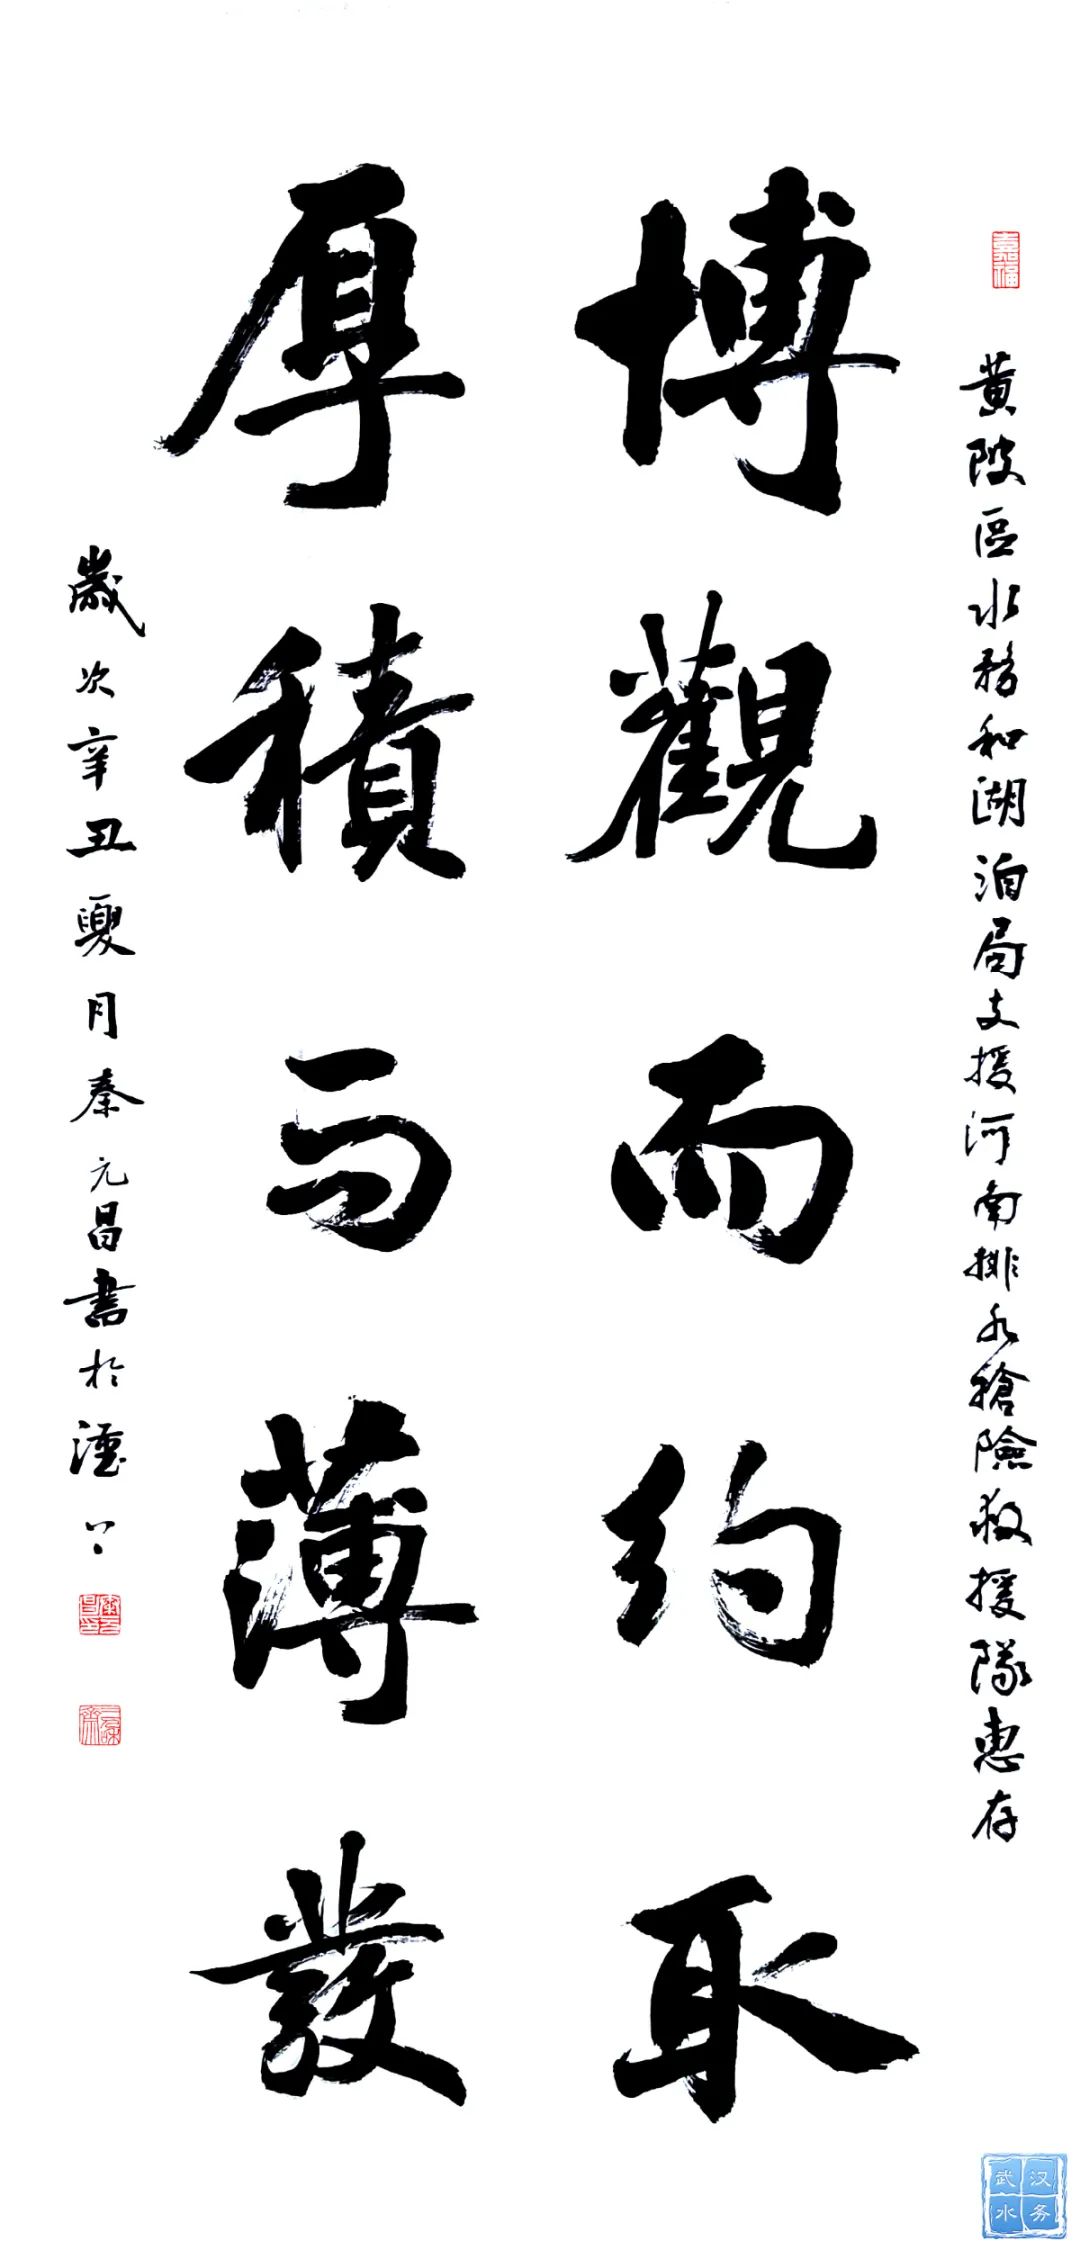 嘉福
黄陂區水務和湖泊局支援河南排水搶險救援隊惠存
博觀而約取
厚積而薄發
歲次辛丑夏月秦元昌書於上
武汉
水务